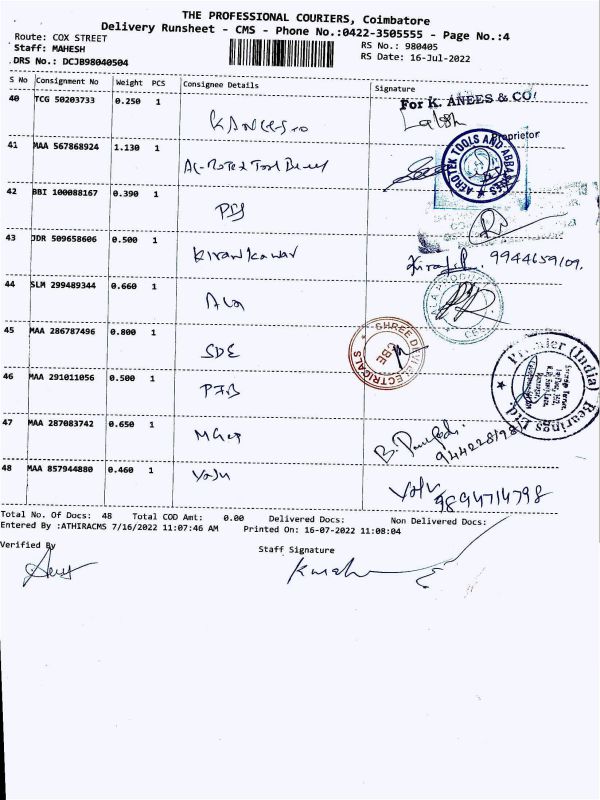 THE PROFESSIONAL COURIERS, Coimbatore
Delivery Runsheet - CMS - Phone No.:0422-3505555 - Page No.:4
Route: COX STREET
RS No.: 980405
Staff: MAHESH
RS Date: 16-Jul-2022
DRS No.: DCJB98040504
S No Consignment No Weight PCS Consignee Details Signature
40 TCG 50203733 0.250 1
For K. ANEES & CO.
Proprietor
41 MAA 567868924 1.130 1
AEROTEK TOOLS AND
42 BBI 100088167 0.390 1
43 JDR 509658606 0.500 1 Kiran Kawar
9944659109.
44 SLM 299489344 0.660 1
45 MAA 286787496 0.800 1 SDE
SHREE DEVI ELECTRICALS
CBE
Premier (India) Bearings Ltd.
46 MAA 291011056 0.500 1 PFB
47 MAA 287083742 0.650 1
944228198
48 MAA 857944880 0.460 1 Valu
Valu
9894714798
Total No. Of Docs: 48 Total COD Amt: 0.00 Delivered Docs: Non Delivered Docs:
Entered By :ATHIRACMS 7/16/2022 11:07:46 AM Printed On: 16-07-2022 11:08:04
Verified By
Staff Signature